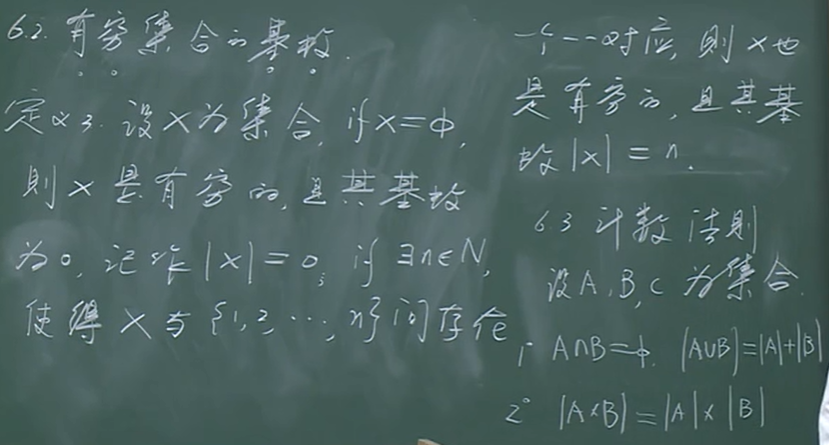 6.2. 有穷集合的基数.
定义3. 设X为集合, if X=ϕ,
則X是有穷的, 且其基数
为0, 记作|X|=0; if ∃n∈N,
使得X与{1,2,…,n}间存在
一个一一对应, 则X也
是有穷的, 且其基
数|X|=n.
6.3 计数法则
设A,B,C为集合.
1° A∩B=ϕ. |A∪B|=|A|+|B|
2° |A×B|=|A|×|B|